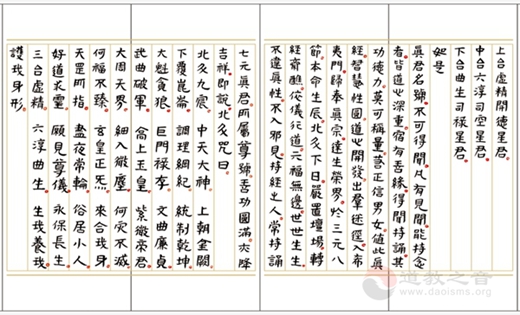 上台虛精開德星君
中台六淳司空星君
下台曲生司禄星君
如是
真君名號不可得聞凡有見聞能持念
者皆道心深重宿有善緣得聞持誦其
功德力莫可稱量善正信男女值此真
經智慧性圓道心開發出羣迷徑入希
夷門歸奉真宗達生榮界於三元八
節本命生辰北斗下日嚴置壇場轉
經齋醮依儀行道元福無邊世世生生
不違真性不入邪見持經之人常持誦
七元真君所屬尊號善功圓滿亦降
吉祥即說北斗咒曰
北斗九宸 中天大神 上朝金闕
下覆崑崙 調理綱紀 統制乾坤
大魁貪狼 巨門禄存 文曲廉貞
武曲破軍 高上玉皇 紫微帝君
大周天界 細入微塵 何災不滅
何福不臻 玄皇正炁 來合我身
天罡所指 晝夜常輪 俗居小人
好道求靈 願見尊儀 永保長生
三台虛精 六淳曲生 生我養我
護我身形
道教之音
www.daoisms.org